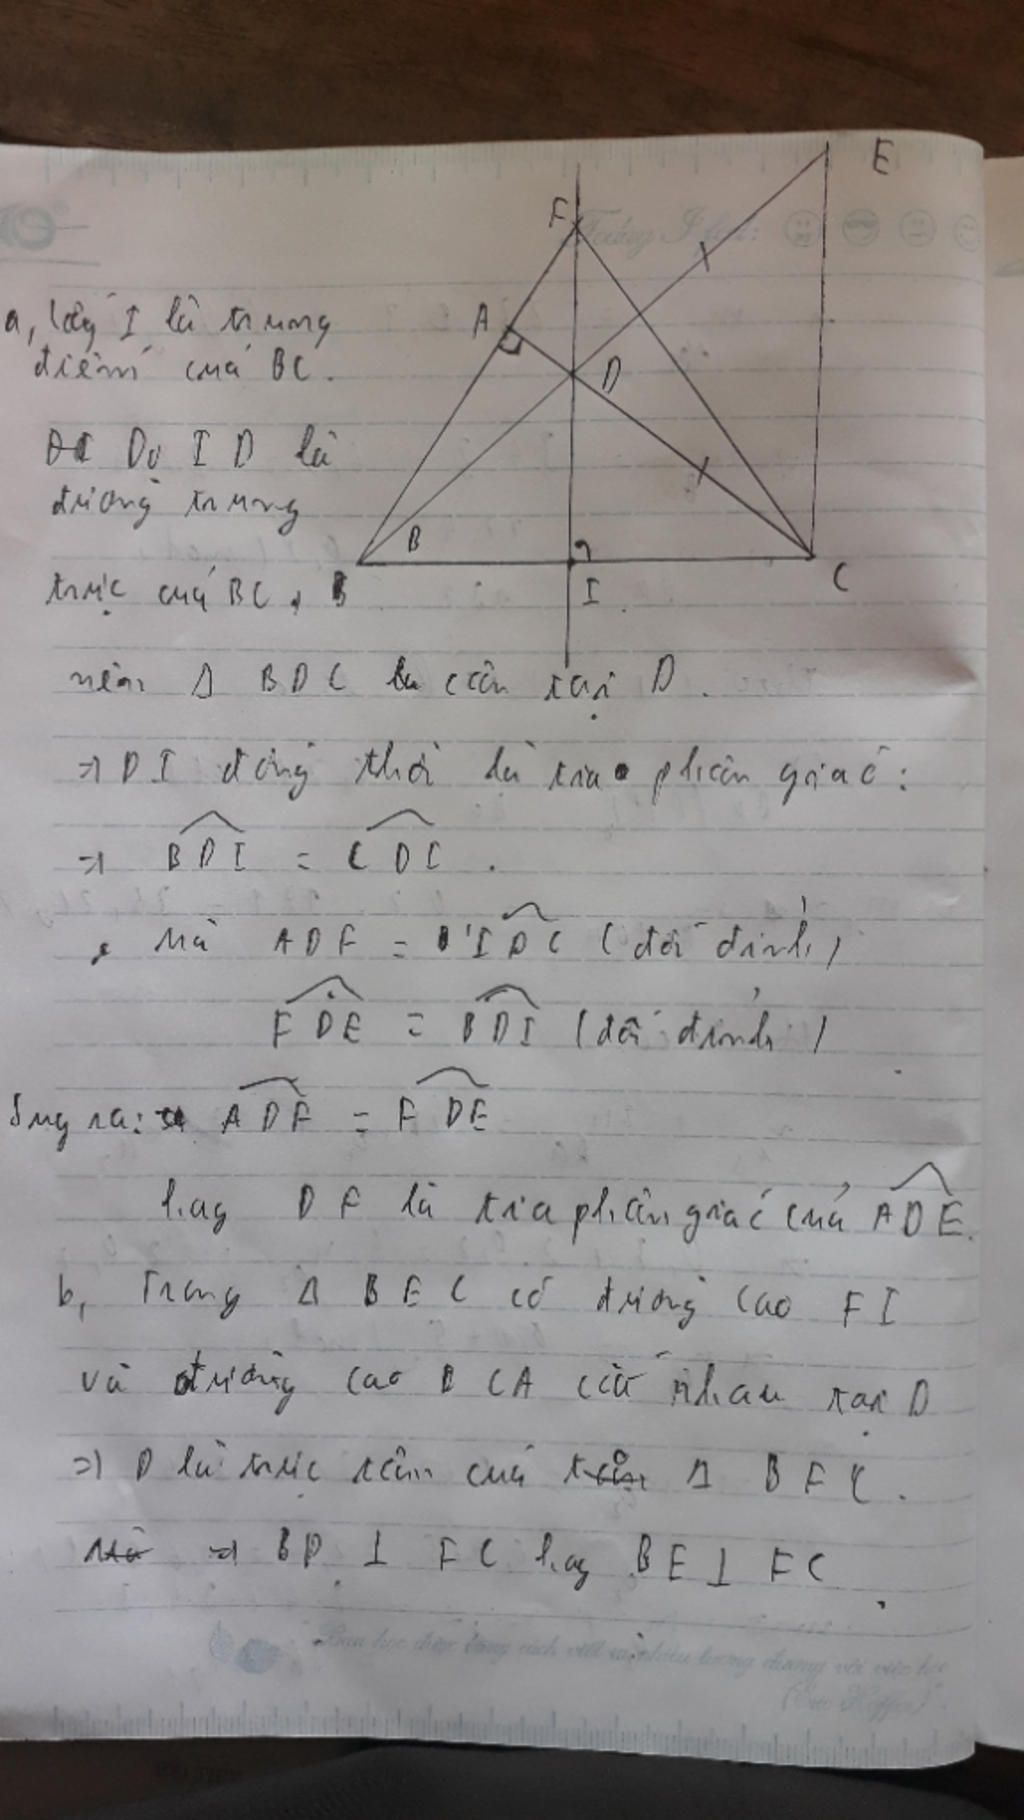 E
F
Today I feel:
A
a, Lấy I là trung
điểm của BC.
D
Do I D là
đường trung
B
trực của BC,
B
I
C
nên Δ BDC cân tại D.
=> DI đồng thời là tia phân giác:
=> BDI = CDI.
Mà ADF = IDC (đối đỉnh)
FDE = BDI (đối đỉnh)
Suy ra: ADF = FDE
hay DF là tia phân giác của ADE.
b, Trong Δ BFC có đường cao FI
và đường cao CA cắt nhau tại D
=> D là trực tâm của Δ BFC.
=> BD ⊥ FC hay BE ⊥ FC
Bạn học được bằng cách viết
(Eric Hoffer)